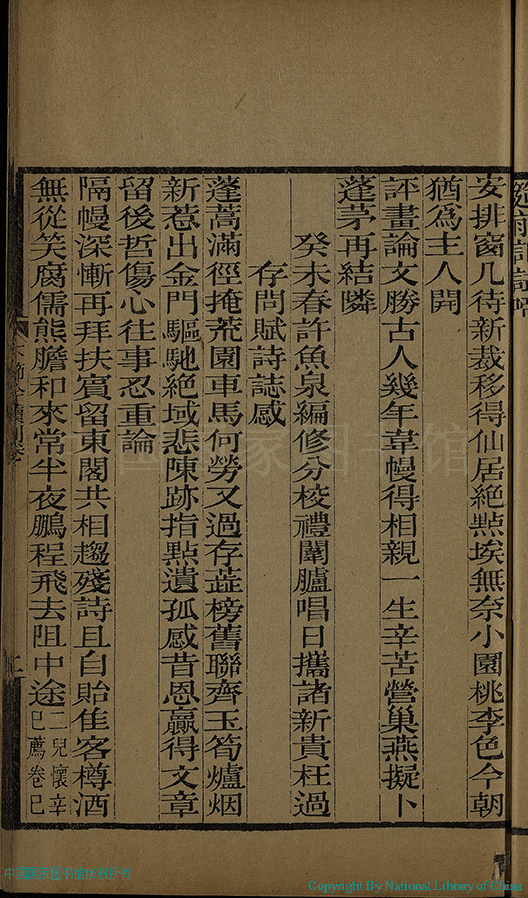 安排窗几待新裁移得仙居絶㸃埃無奈小園桃李色今朝
猶爲主人開
評畫論文勝古人幾年韋幔得相親一生辛苦營巢燕擬卜
蓬茅再結隣
癸未春許魚泉編修分校禮闈臚唱日攜諸新貴枉過
存問賦詩誌感
蓬蒿滿徑掩荒園車馬何勞又過存蘂榜舊聯齊玉筍爐烟
新惹出金門驅馳絶域悲陳跡指㸃遺孤感昔恩贏得文章
留後哲傷心往事忍重論
隔幔深慚再拜扶賓留東閣共相趨殘詩且自貽佳客樽酒
無從笑腐儒熊膽和來常半夜鵬程飛去阻中途二兒懷辛
巳薦卷巳
中国国家图书馆
Copyright By National Library of China